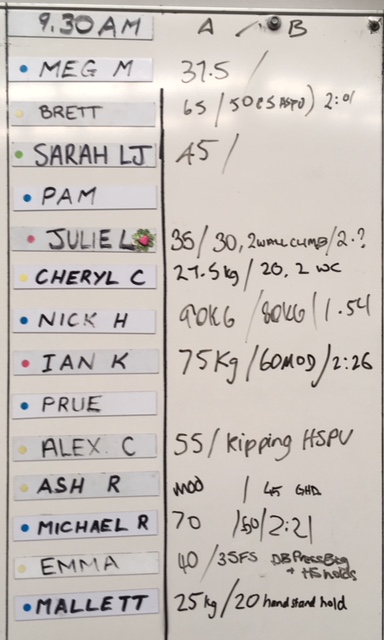 9.30AM A / B
MEG M 37.5 /
BRETT 65 / 50 HSPU) 2:01
SARAH LJ 45 /
PAM
JULIE L 35 / 30, 2 WALL CLIMB / 2.?
CHERYL C 27.5kg / 20, 2 WC
NICK H 90KG / 80KG / 1.54
IAN K 75Kg / 60MOD / 2:26
PRUE
ALEX C 55 / Kipping HSPU
ASH R MOD / 45 GHD
MICHAEL R 70 / 50 / 2:21
EMMA 40 / 35FS DB Press
+ HS holds
MALLETT 25kg / 20 handstand hold